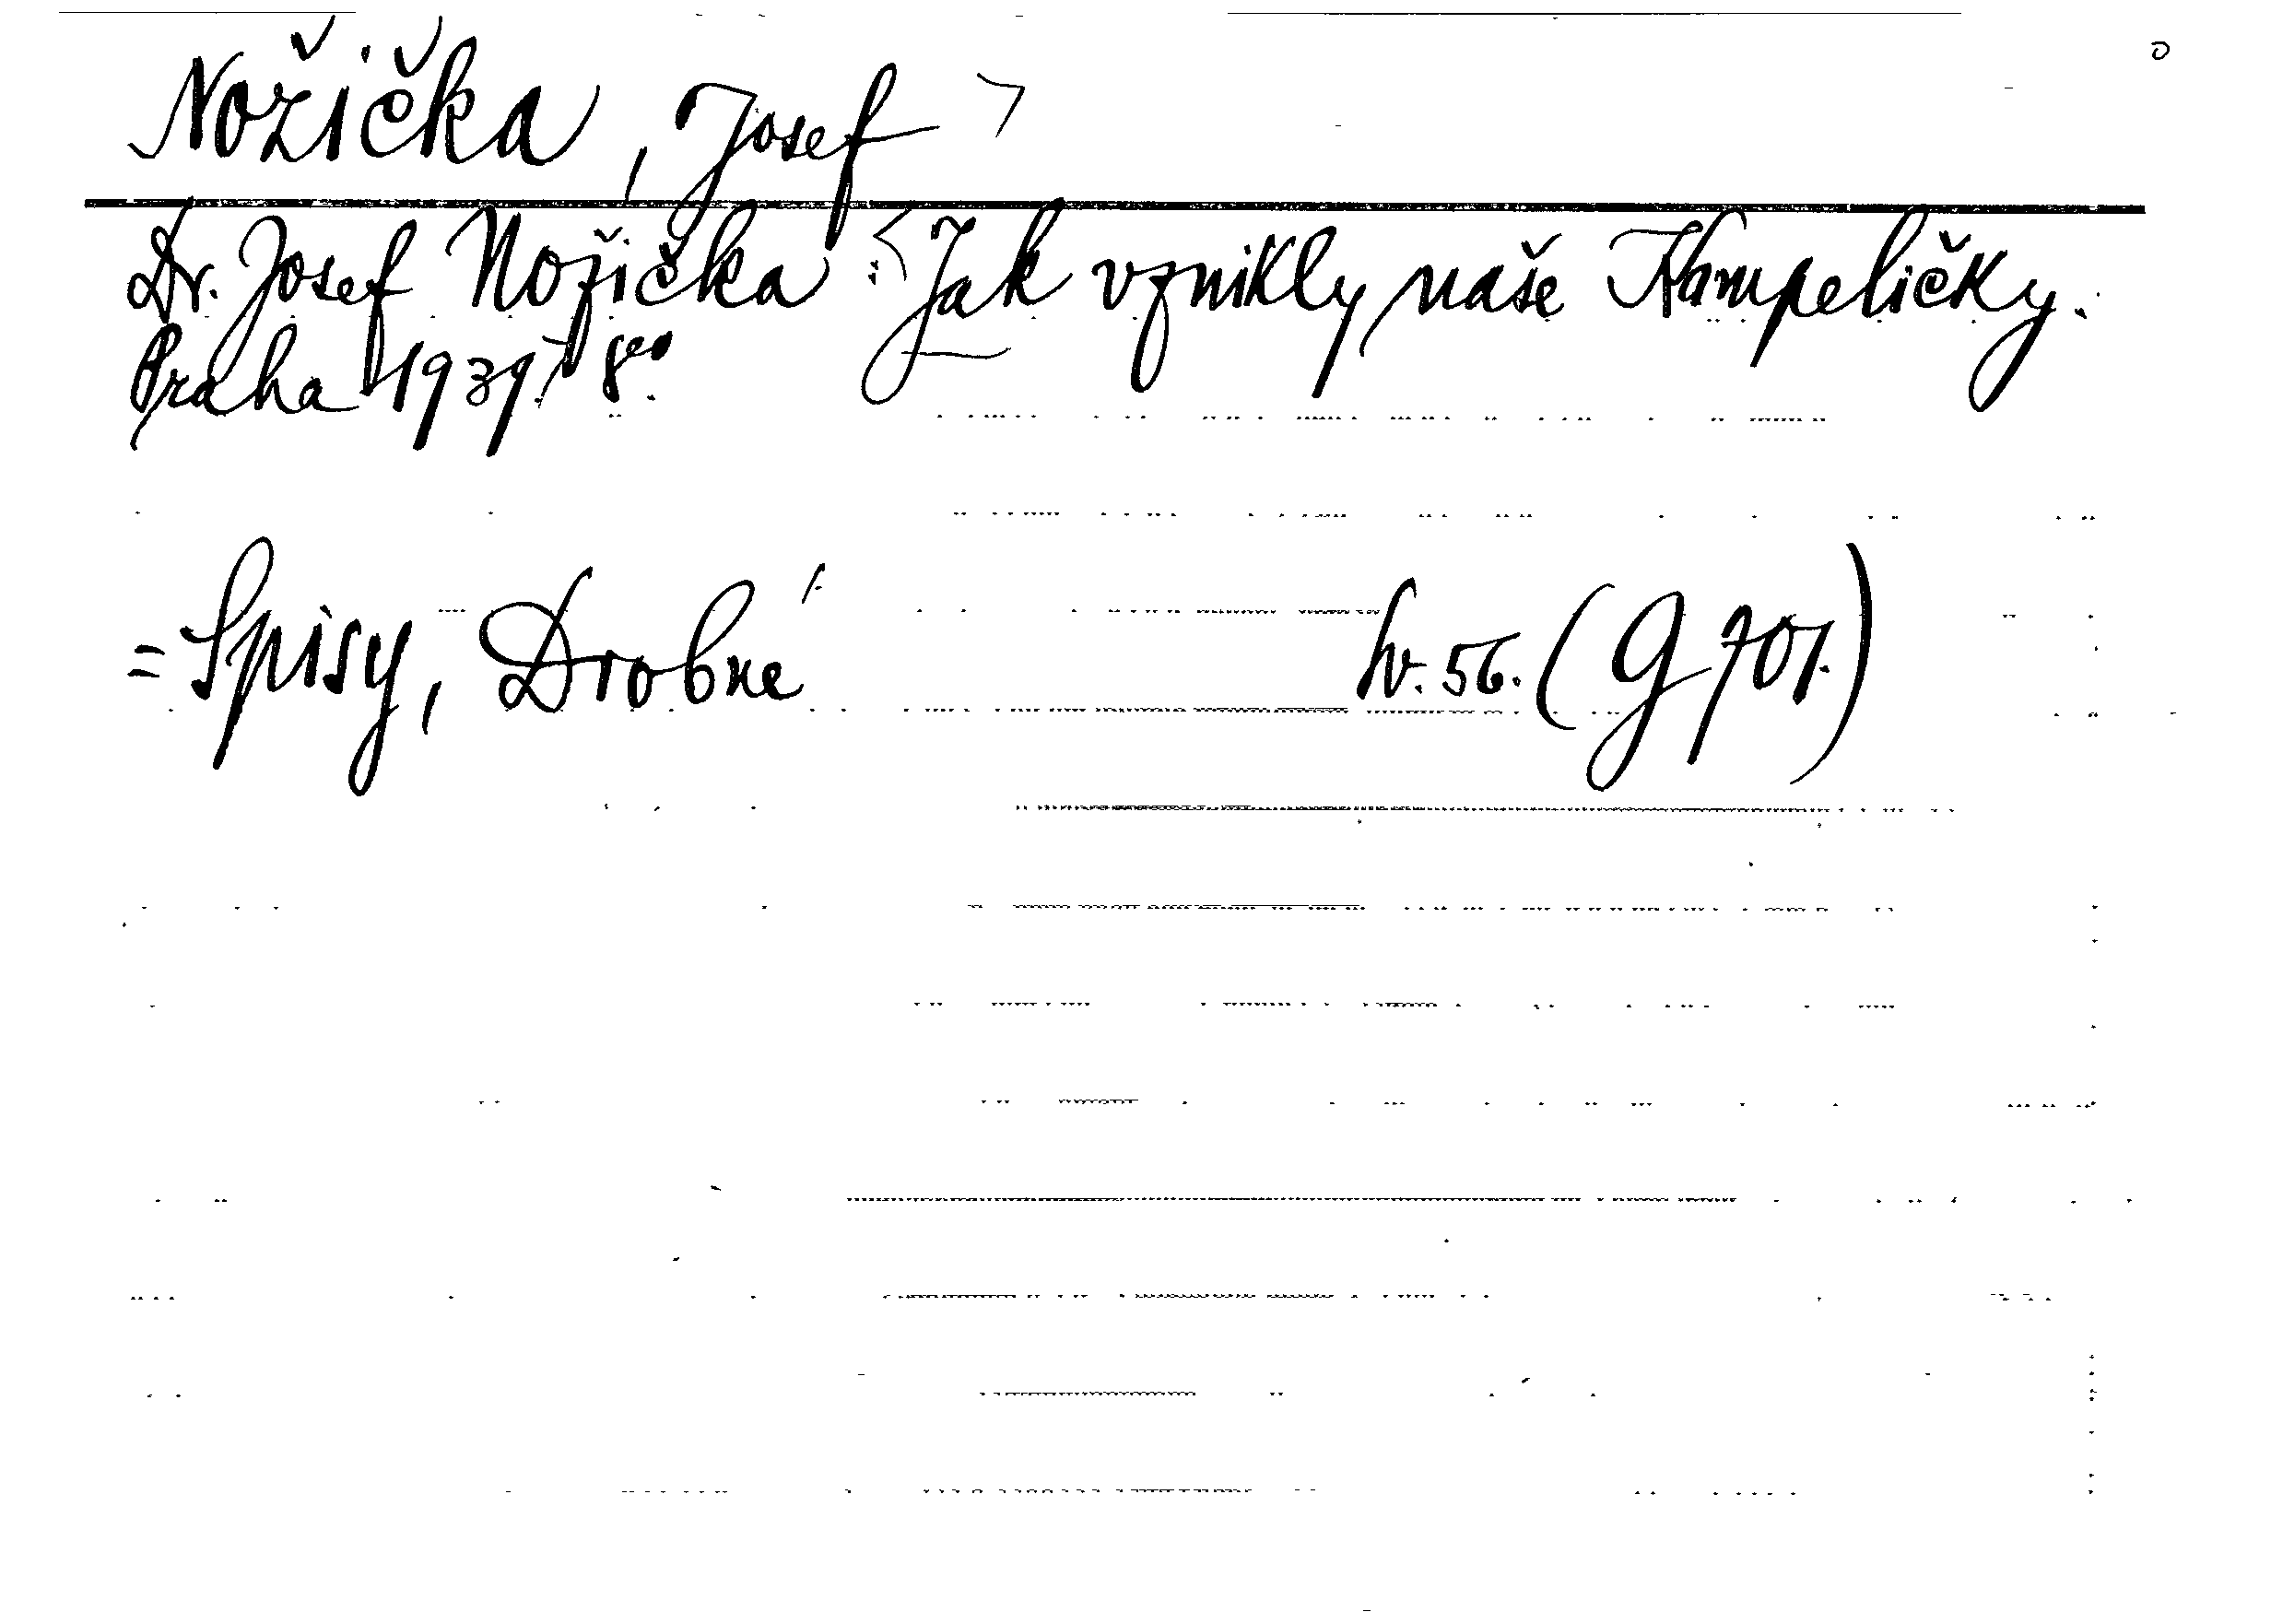 Nožička, Josef
Dr. Josef Nožička: Jak vznikly naše Kampeličky.
Praha 1939. 8°.
= Spisy, Drobné sv. 56. (G 701.)